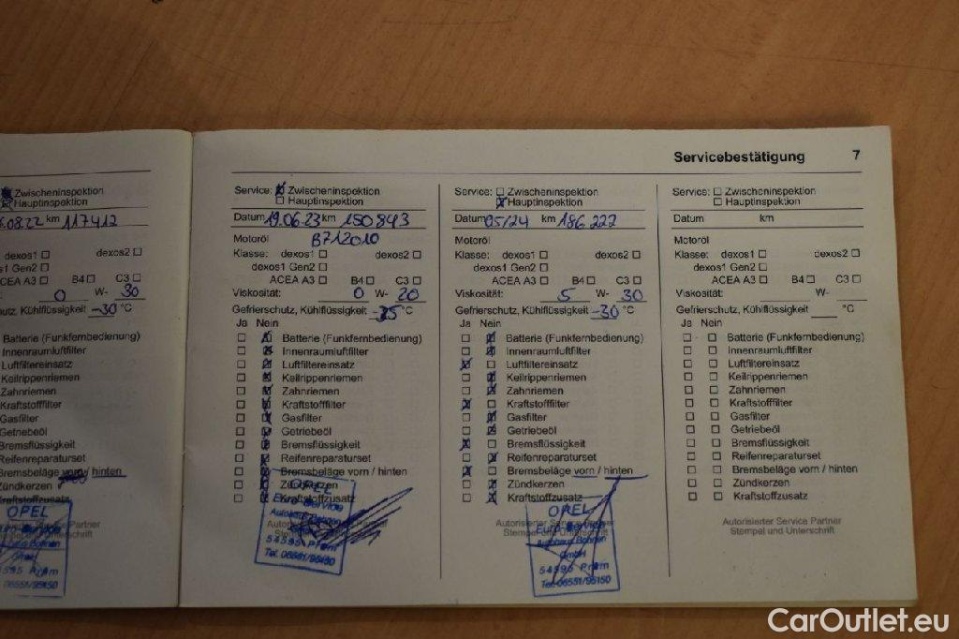 Servicebestätigung 7
Zwischeninspektion
Hauptinspektion
.08.22 km 117412
dexos1 ☐ dexos2 ☐
os1 Gen2 ☐
ACEA A3 ☐ B4 ☐ C3 ☐
0 W- 30
utz, Kühlflüssigkeit -30 °C
Batterie (Funkfernbedienung)
Innenraumluftfilter
Luftfiltereinsatz
Keilrippenriemen
Zahnriemen
Kraftstofffilter
Gasfilter
Getriebeöl
Bremsflüssigkeit
Reifenreparaturset
Bremsbeläge vorn / hinten
Zündkerzen
Kraftstoffzusatz
OPEL
Service Partner
Autohaus Bohnen
GmbH
54595 Prüm
06551/95150
Service: ☒ Zwischeninspektion
☐ Hauptinspektion
Datum 19.06.23 km 150843
Motoröl B712010
Klasse: dexos1 ☐ dexos2 ☐
dexos1 Gen2 ☐
ACEA A3 ☐ B4 ☐ C3 ☐
Viskosität: 0 W- 20
Gefrierschutz, Kühlflüssigkeit -35 °C
Ja Nein
☐ ☒ Batterie (Funkfernbedienung)
☐ ☒ Innenraumluftfilter
☐ ☒ Luftfiltereinsatz
☐ ☒ Keilrippenriemen
☐ ☒ Zahnriemen
☐ ☒ Kraftstofffilter
☐ ☒ Gasfilter
☐ ☒ Getriebeöl
☐ ☒ Bremsflüssigkeit
☐ ☒ Reifenreparaturset
☐ ☒ Bremsbeläge vorn / hinten
☐ ☒ Zündkerzen
☐ ☒ Kraftstoffzusatz
OPEL
Euro Service
Autohaus Bohnen
54595 Prüm
Tel. 06551/95150
Service: ☐ Zwischeninspektion
☒ Hauptinspektion
Datum 05/24 km 186222
Motoröl
Klasse: dexos1 ☐ dexos2 ☐
dexos1 Gen2 ☐
ACEA A3 ☐ B4 ☐ C3 ☐
Viskosität: 5 W- 30
Gefrierschutz, Kühlflüssigkeit -30 °C
Ja Nein
☐ ☒ Batterie (Funkfernbedienung)
☐ ☒ Innenraumluftfilter
☒ ☐ Luftfiltereinsatz
☐ ☒ Keilrippenriemen
☐ ☒ Zahnriemen
☒ ☐ Kraftstofffilter
☐ ☒ Gasfilter
☐ ☒ Getriebeöl
☒ ☐ Bremsflüssigkeit
☐ ☒ Reifenreparaturset
☒ ☐ Bremsbeläge vorn / hinten
☐ ☒ Zündkerzen
☐ ☒ Kraftstoffzusatz
OPEL
Euro Service
Autohaus Bohnen
GmbH
54595 Prüm
Tel. 06551/95150
Service: ☐ Zwischeninspektion
☐ Hauptinspektion
Datum km
Motoröl
Klasse: dexos1 ☐ dexos2 ☐
dexos1 Gen2 ☐
ACEA A3 ☐ B4 ☐ C3 ☐
Viskosität: W-
Gefrierschutz, Kühlflüssigkeit °C
Ja Nein
☐ ☐ Batterie (Funkfernbedienung)
☐ ☐ Innenraumluftfilter
☐ ☐ Luftfiltereinsatz
☐ ☐ Keilrippenriemen
☐ ☐ Zahnriemen
☐ ☐ Kraftstofffilter
☐ ☐ Gasfilter
☐ ☐ Getriebeöl
☐ ☐ Bremsflüssigkeit
☐ ☐ Reifenreparaturset
☐ ☐ Bremsbeläge vorn / hinten
☐ ☐ Zündkerzen
☐ ☐ Kraftstoffzusatz
Autorisierter Service Partner
Stempel und Unterschrift
CarOutlet.eu